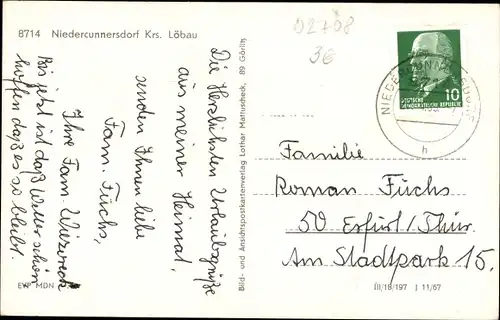 8714 Niedercunnersdorf Krs. Löbau
02708
3€
Die Herzlichsten Urlaubsgrüße
aus meiner Heimat,
senden Ihnen liebe
Fam. Fuchs,
Ihre Fam.
Bis jetzt ist daß Wetter schön
hoffen daß es so bleibt.
EVP MDN
Bild- und Ansichtspostkartenverlag Lothar Mattuscheck, 89 Görlitz
10
DEUTSCHE
DEMOKRATISCHE REPUBLIK
h
Familie
Roman Fuchs
50 Erfurt/Thür.
Am Stadtpark 15.
III/18/197 J 11/67